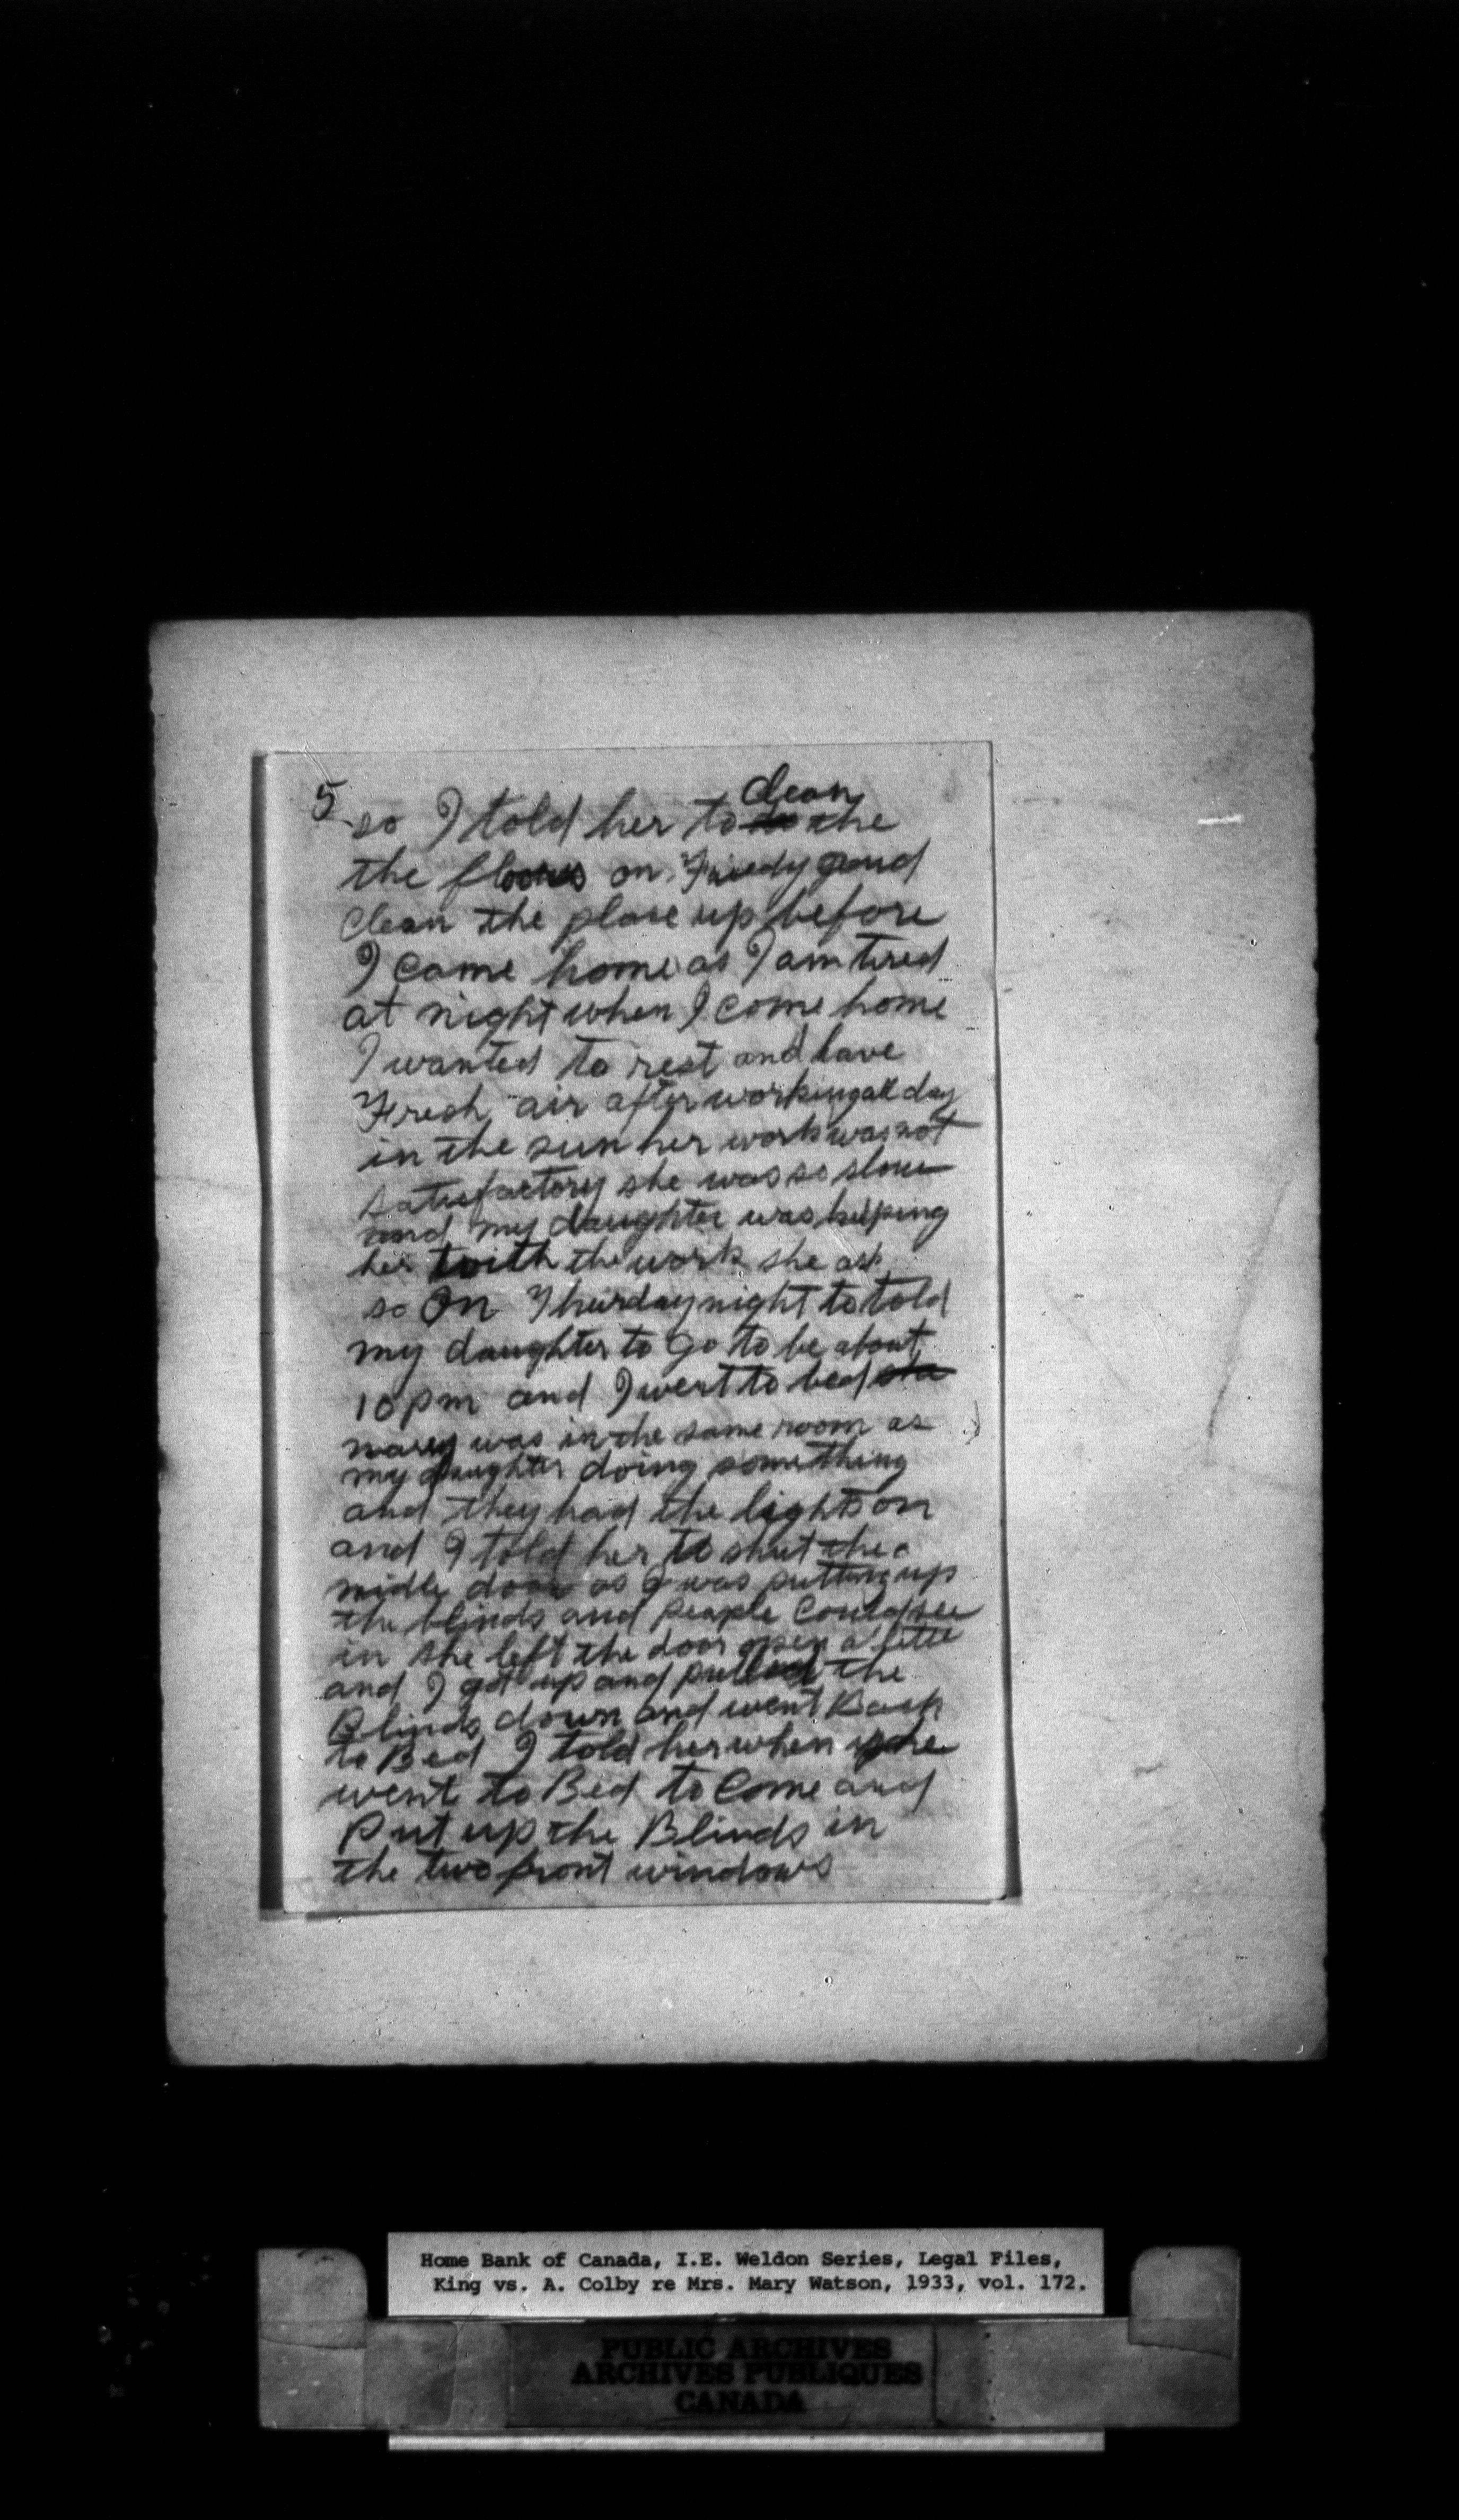 5
clean
so I told her to do the
the floors on Friedy and
Clean the place up before
I came home as I am tired
at night when I come home
I wanted to rest and have
Fresh air after working all day
in the sun her work was not
Satisfactory she was so slow
and my daughter was helping
her with the work she ask
so On Thurday night to told
my daughter to go to be about
10 pm and I went to bed she
mary was in the same room as
my daughter doing something
and they had the lights on
and I told her to shut the
midle door as I was putting up
the blinds and people Could see
in she left the door open a little
and I got up and pulled the
Blinds down and went Back
to Bed I told her when she
went to Bed to Come and
Put up the Blinds in
the two front windows
Home Bank of Canada, I.E. Weldon Series, Legal Files,
King vs. A. Colby re Mrs. Mary Watson, 1933, vol. 172.
PUBLIC ARCHIVES
ARCHIVES PUBLIQUES
CANADA